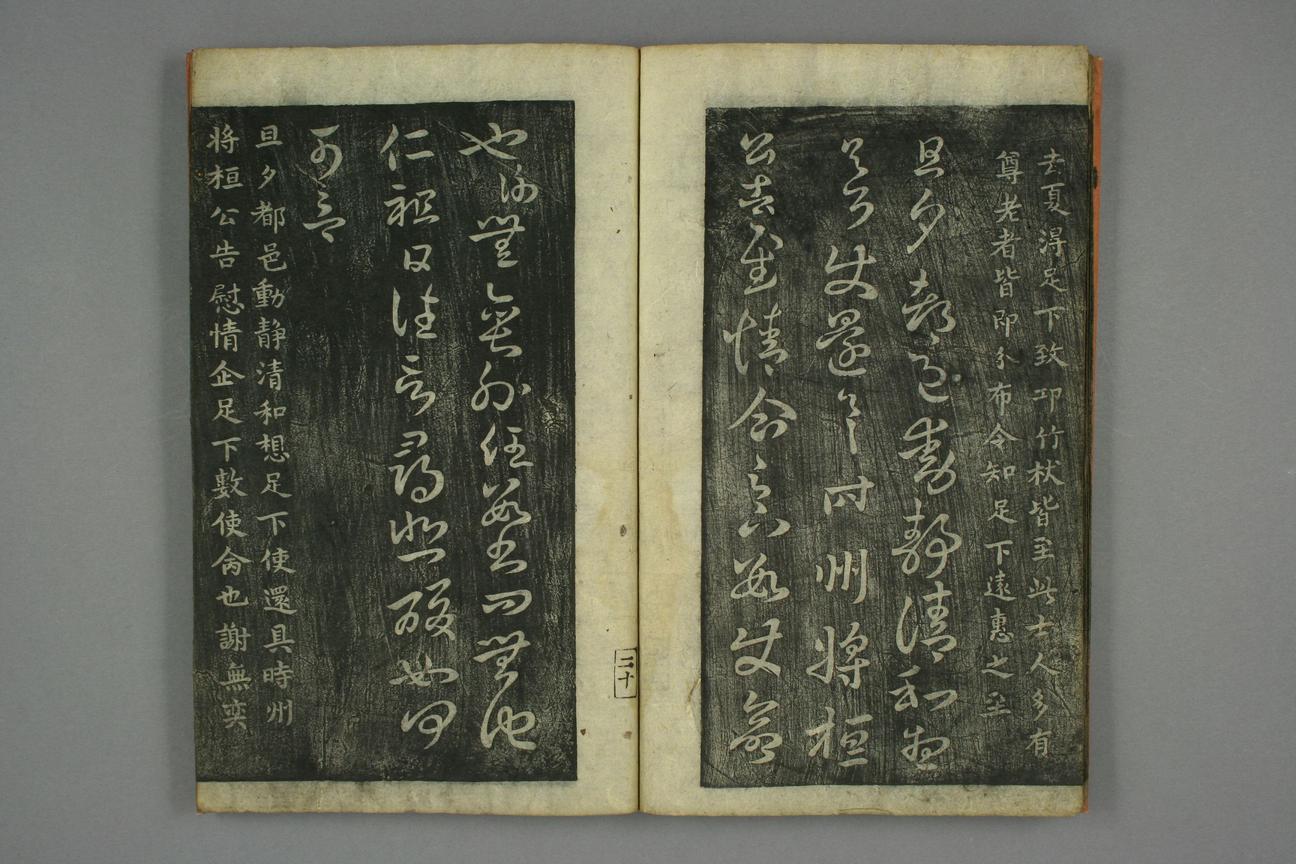 去夏淂足下致邛竹杖皆至此士人多有
尊老者皆即分布令知足下遠惠之至
旦夕都邑動靜清和想
足下使還具時州將桓
公告慰情企足下數使命
也謝無奕外任數書問無他
仁祖日往言尋悲酸如何
可言
旦夕都邑動静清和想足下使還具時州
将桓公告慰情企足下數使命也謝無奕
三十